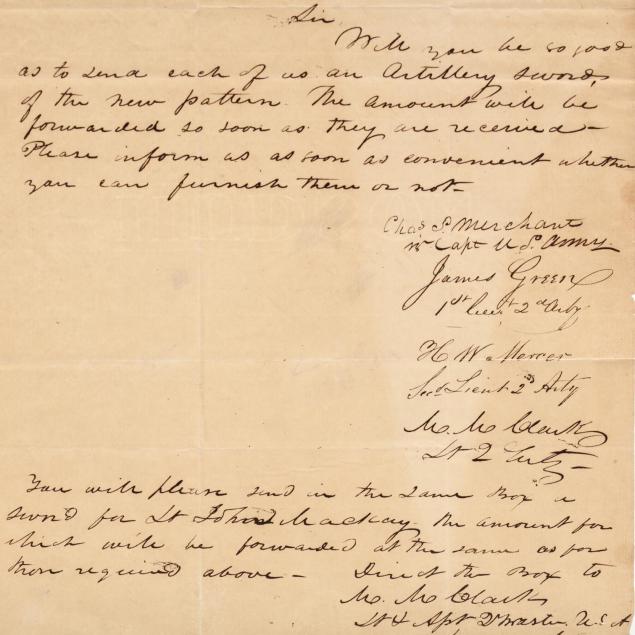 Sir
Will you be so good
as to send each of us an Artillery sword,
of the new pattern. The amount will be
forwarded so soon as they are received –
Please inform us as soon as convenient whether
you can furnish them or not –
Chas S. Merchant
Capt U.S. Army
James Green
1st Lieut 2d Arty
H W. Mercer
Secd Lieut 2nd Arty
M. M. Clark
Lt 2 Arty –
You will please send in the same Box a
sword for Lt John Mackay. the amount for
which will be forwarded at the same as for
those required above – Direct the Box to
M. M. Clark
Lt & Asst Qr Master, U.S. A